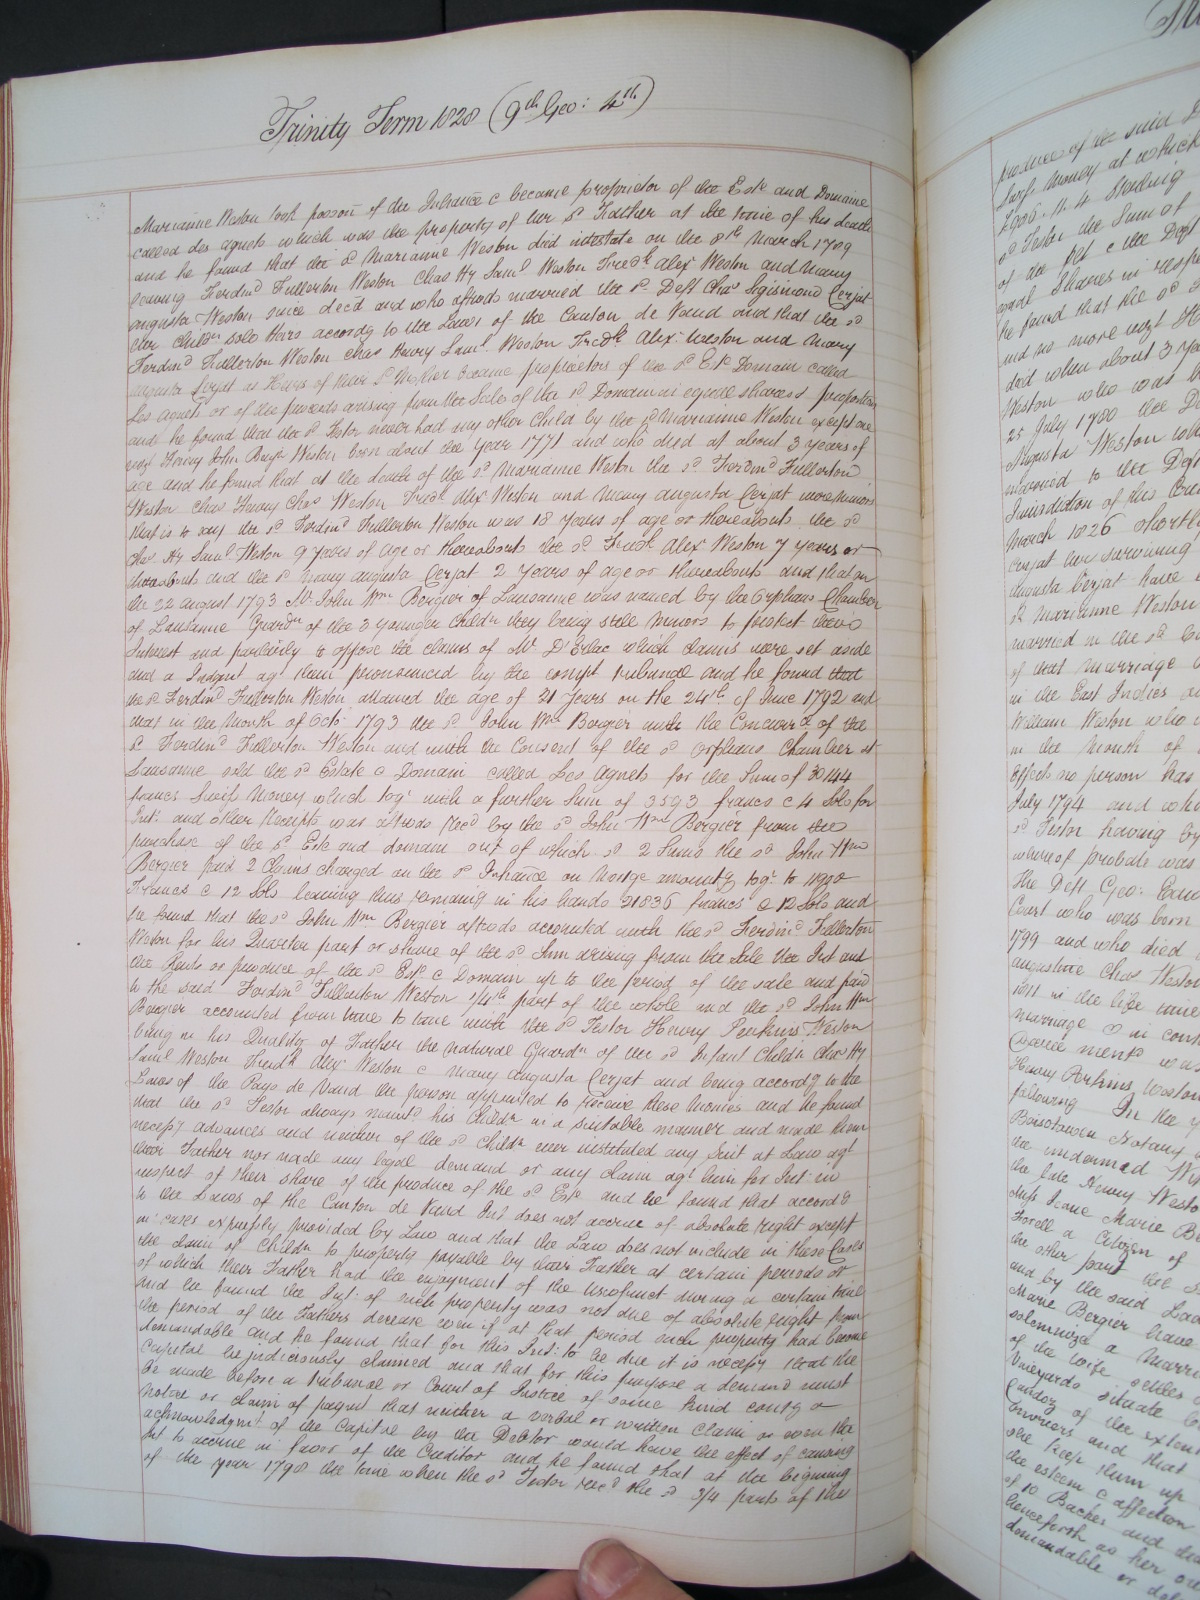 Trinity Term 1828 (9th Geo: 4th)
Marianne Weston took possōn of the Inhānce & became proprietor of the Este and Domaine
called des Agnets which was the property of her sd Father at the time of his death
and he found that the sd Marianne Weston died intestate on the 8th March 1789
leaving Ferdind Fullerton Weston Chas Hy Saml Weston Fredk Alexr Weston and Mary
Augusta Weston since decd and who aftrds married the sd Deft Chas Sigismond Cerjat
her Childn sole Heirs accordg to the Laws of the Canton de Vaud and that the sd
Ferdind Fullerton Weston Chas Henry Saml Weston Fredk Alexr Weston and Mary
Augusta Cerjat as Heirs of their sd Mother became proprietors of the sd Este Domain called
Les Agnets or of the proceeds arising from the Sale of the sd Domain in equal shares & proportions
and he found that the sd Testor never had any other Child by the sd Marianne Weston except one
viz Henry John Weston born about the year 1771 and who died at about 3 years of
age and he found that at the death of the sd Marianne Weston the sd Ferdind Fullerton
Weston Chas Henry Chas Weston Fredk Alexr Weston and Mary Augusta Cerjat were minors
that is to say the sd Ferdind Fullerton Weston was 18 Years of age or thereabouts the sd
Chas Hy Saml Weston 9 years of age or thereabouts the sd Fredk Alexr Weston 7 years or
thereabouts and the sd Mary Augusta Cerjat 2 Years of age or thereabouts and that on
the 22 August 1793 Mr John Wm Bergier of Lausanne was named by the Orphans Chamber
of Lausanne Guardn of the 3 younger Childn they being still Minors to protect their
Interest and particrly to oppose the claims of Mr D'Erlac which claims were set aside
and a Judgmt agt them pronounced by the compt tribunal and he found that
the sd Ferdind Fullerton Weston attained the age of 21 Years on the 24th of June 1792 and
that in the Month of Octr 1793 the sd John Wm Bergier with the Concurrce of the
sd Ferdind Fullerton Weston and with the Consent of the sd Orphans Chamber at
Lausanne sold the sd Estate & Domain called Les Agnets for the Sum of 30144
francs Swiss Money which togr with a further Sum of 3593 francs & 4 Sols for
Int: and other Receipts was aftrds Recd by the sd John Wm Bergier from the
purchase of the sd Este and domain out of which sd 2 Sums the sd John Wm
Bergier paid 2 Claims charged on the sd Inhānce on Mortge amountg togr to 11900
Francs & 12 Sols leaving thus remaing in his hands 21836 francs & 12 Sols and
he found that the sd John Wm Bergier aftrds accounted with the sd Ferdind Fullerton
Weston for his Quarter part or share of the sd Sum arising from the Sale the Int and
the Rents or produce of the sd Este & Domain up to the period of the sale and paid
to the said Ferdind Fullerton Weston 1/4th part of the whole and the sd John Wm
Bergier accounted from time to time with the sd Testor Henry Perkins Weston
being in his Quality of Father the natural Guardn of the sd Infant Childn Chas Hy
Saml Weston Fredk Alexr Weston & Mary Augusta Cerjat and being accordg to the
Laws of the Pays de Vaud the person appointed to receive these Monies and he found
that the sd Testor always maintd his Childn in a suitable manner and made them
necessy advances and neither of the sd Childn ever instituted any Suit at Law agt
their Father nor made any legal demand or any claim agt him for Int: in
respect of their share of the produce of the sd Este and he found that accordg
to the Laws of the Canton de Vaud Int does not accrue of absolute right except
in cases expressly provided by Law and that the Law does not include in these Cases
the claim of Childn to property payable by their Father at certain periods or
of which their Father had the enjoyment of the usufruct during a certain time
and he found the Int: of such property was not due of absolute right from
the period of the Fathers decease even if at that period such property had become
demandable and he found that for this Int: to be due it is necessy that the
Capital be judiciously claimed and that for this purpose a demand must
be made before a tribunal or Court of Justice of some kind contg a
notice or claim of paymt that neither a verbal or written claim or even the
acknowledgmt of the Capital by the Debtor would have the effect of causing
Int to accrue in favor of the Creditor and he found that at the beginning
of the year 1798 the time when the sd Testor recd the sd 3/4 parts of the
produce of the said
Swiss Money at which
Sterling
sd Testor the Sum of
of the plt & the Deft
equal Shares in respect
he found that the sd
and no more
died when about 3 Years
Weston who was
25 July 1780 the
Augusta Weston
married to the Deft
Jurisdiction of this Court
March 1826 shortly
Cerjat her surviving
Augusta Cerjat have
sd Marianne Weston
married in the sd
of that Marriage
in the East Indies
William Weston who
in the Month of
Effects no person has
July 1794 and
sd Testor having by
whereof probate was
The Deft Geo:
Court who was born
1799 and who died
Augustine Chas Weston
1811 in the life time
marriage
was
Henry Perkins Weston
following In the
Notary
the undermed
the late Henry Weston
Marie
a Citizen of
the other part the
and by the said
Marie Bergier have
solemnize a Marriage
of the wife settles
Vineyards situate
of the extent
and that
she keep them up
the esteem & affection
of 10 Baches and
henceforth as her own
demandable or